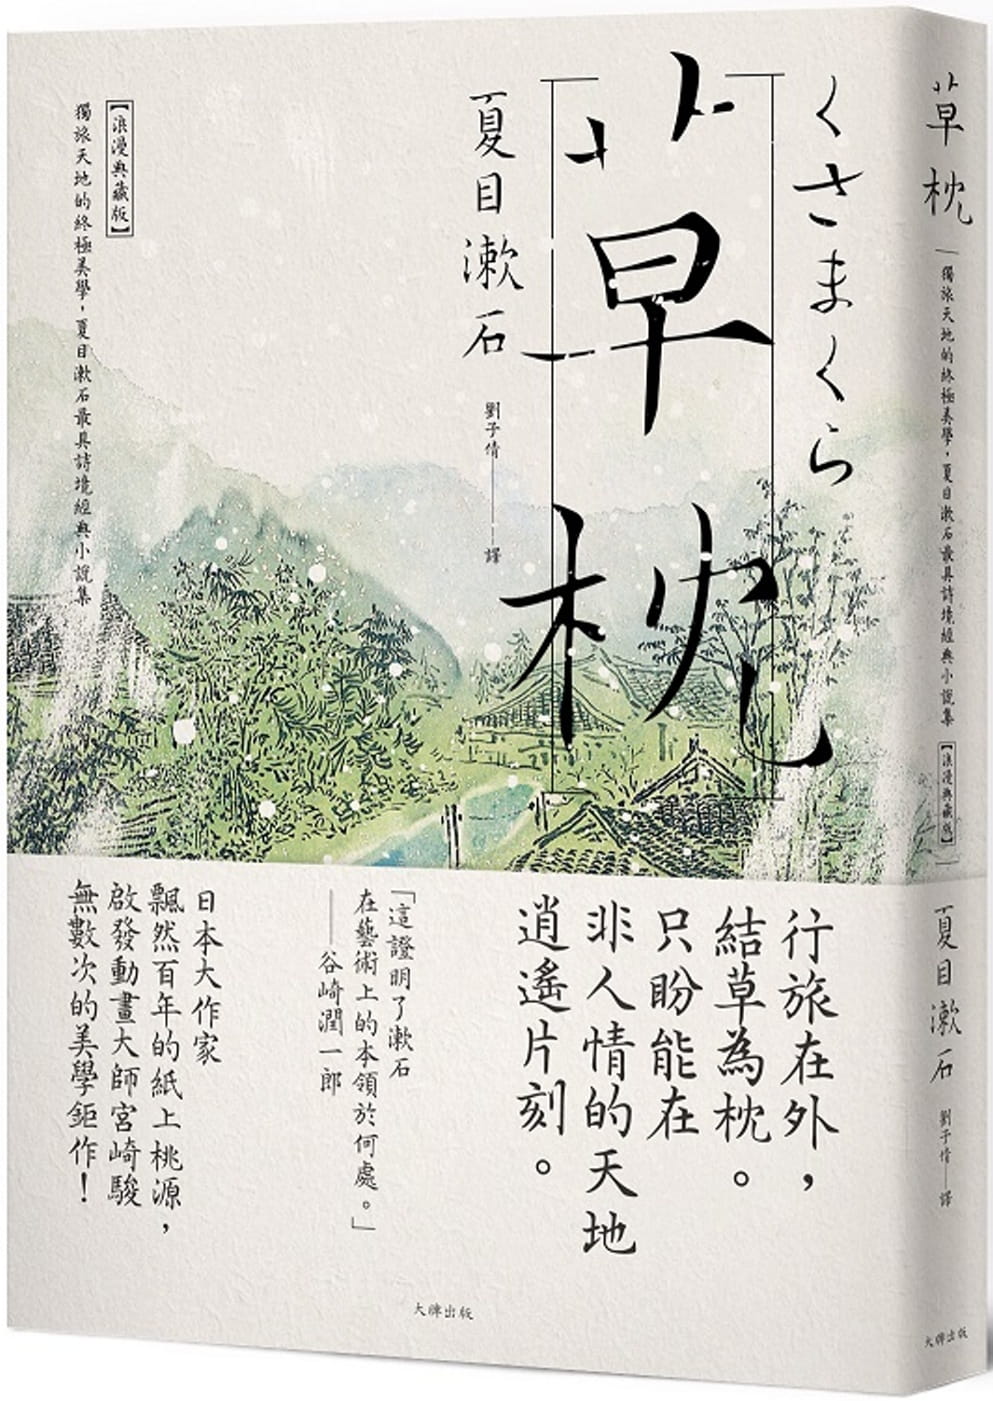 くさまくら
草枕
夏目漱石
劉子倩——譯
【浪漫典藏版】
獨旅天地的終極美學，夏目漱石最具詩境經典小說集
行旅在外，
結草為枕。
只盼能在
非人情的天地
逍遙片刻。
「這證明了漱石
在藝術上的本領於何處。」
——谷崎潤一郎
日本大作家
飄然百年的紙上桃源，
啟發動畫大師宮崎駿
無數次的美學鉅作！
大牌出版
草枕
獨旅天地的終極美學，夏目漱石最具詩境經典小說集
【浪漫典藏版】
夏目漱石
劉子倩——譯
大牌出版